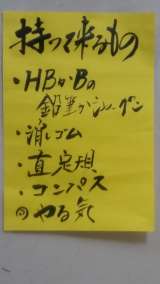 持って来るもの
・HBか・Bの
鉛筆かシャーペン
・消しゴム
・直定規
・コンパス
・やる気